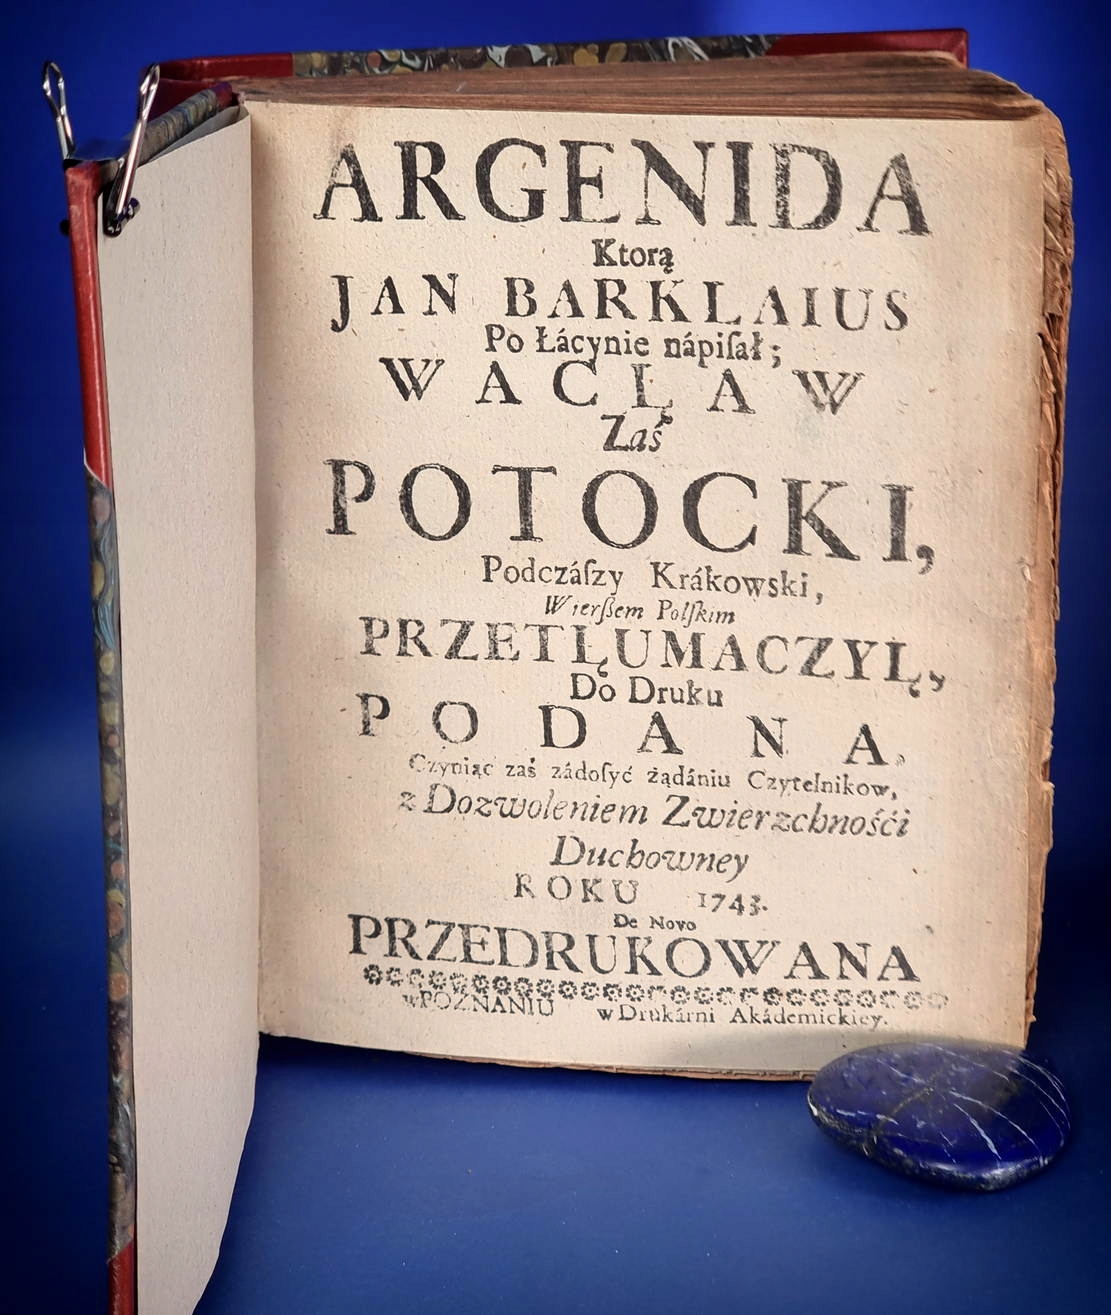 ARGENIDA
Ktorą
JAN BARKLAIUS
Po Łácynie nápiſał;
WACŁAW
Zaś
POTOCKI,
Podczáſzy Krákowski,
Wierßem Polſkim
PRZETŁUMACZYŁ,
Do Druku
PODANA.
Czyniąc zaś zádoſyć żądániu Czytelnikow,
z Dozwoleniem Zwierzchnośći
Duchowney
ROKU 1743.
De Novo
PRZEDRUKOWANA
w POZNANIU w Drukárni Akádemickiey.